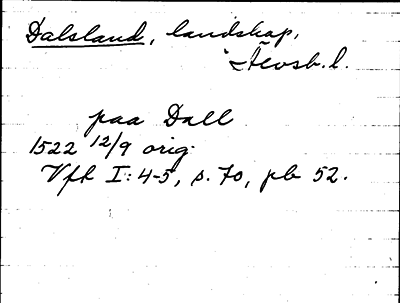 Dalsland, landskap,
Älvsb. l.
paa Dall
1522 12/9 orig.
Vfk I: 4-5, s. 70, pb 52.